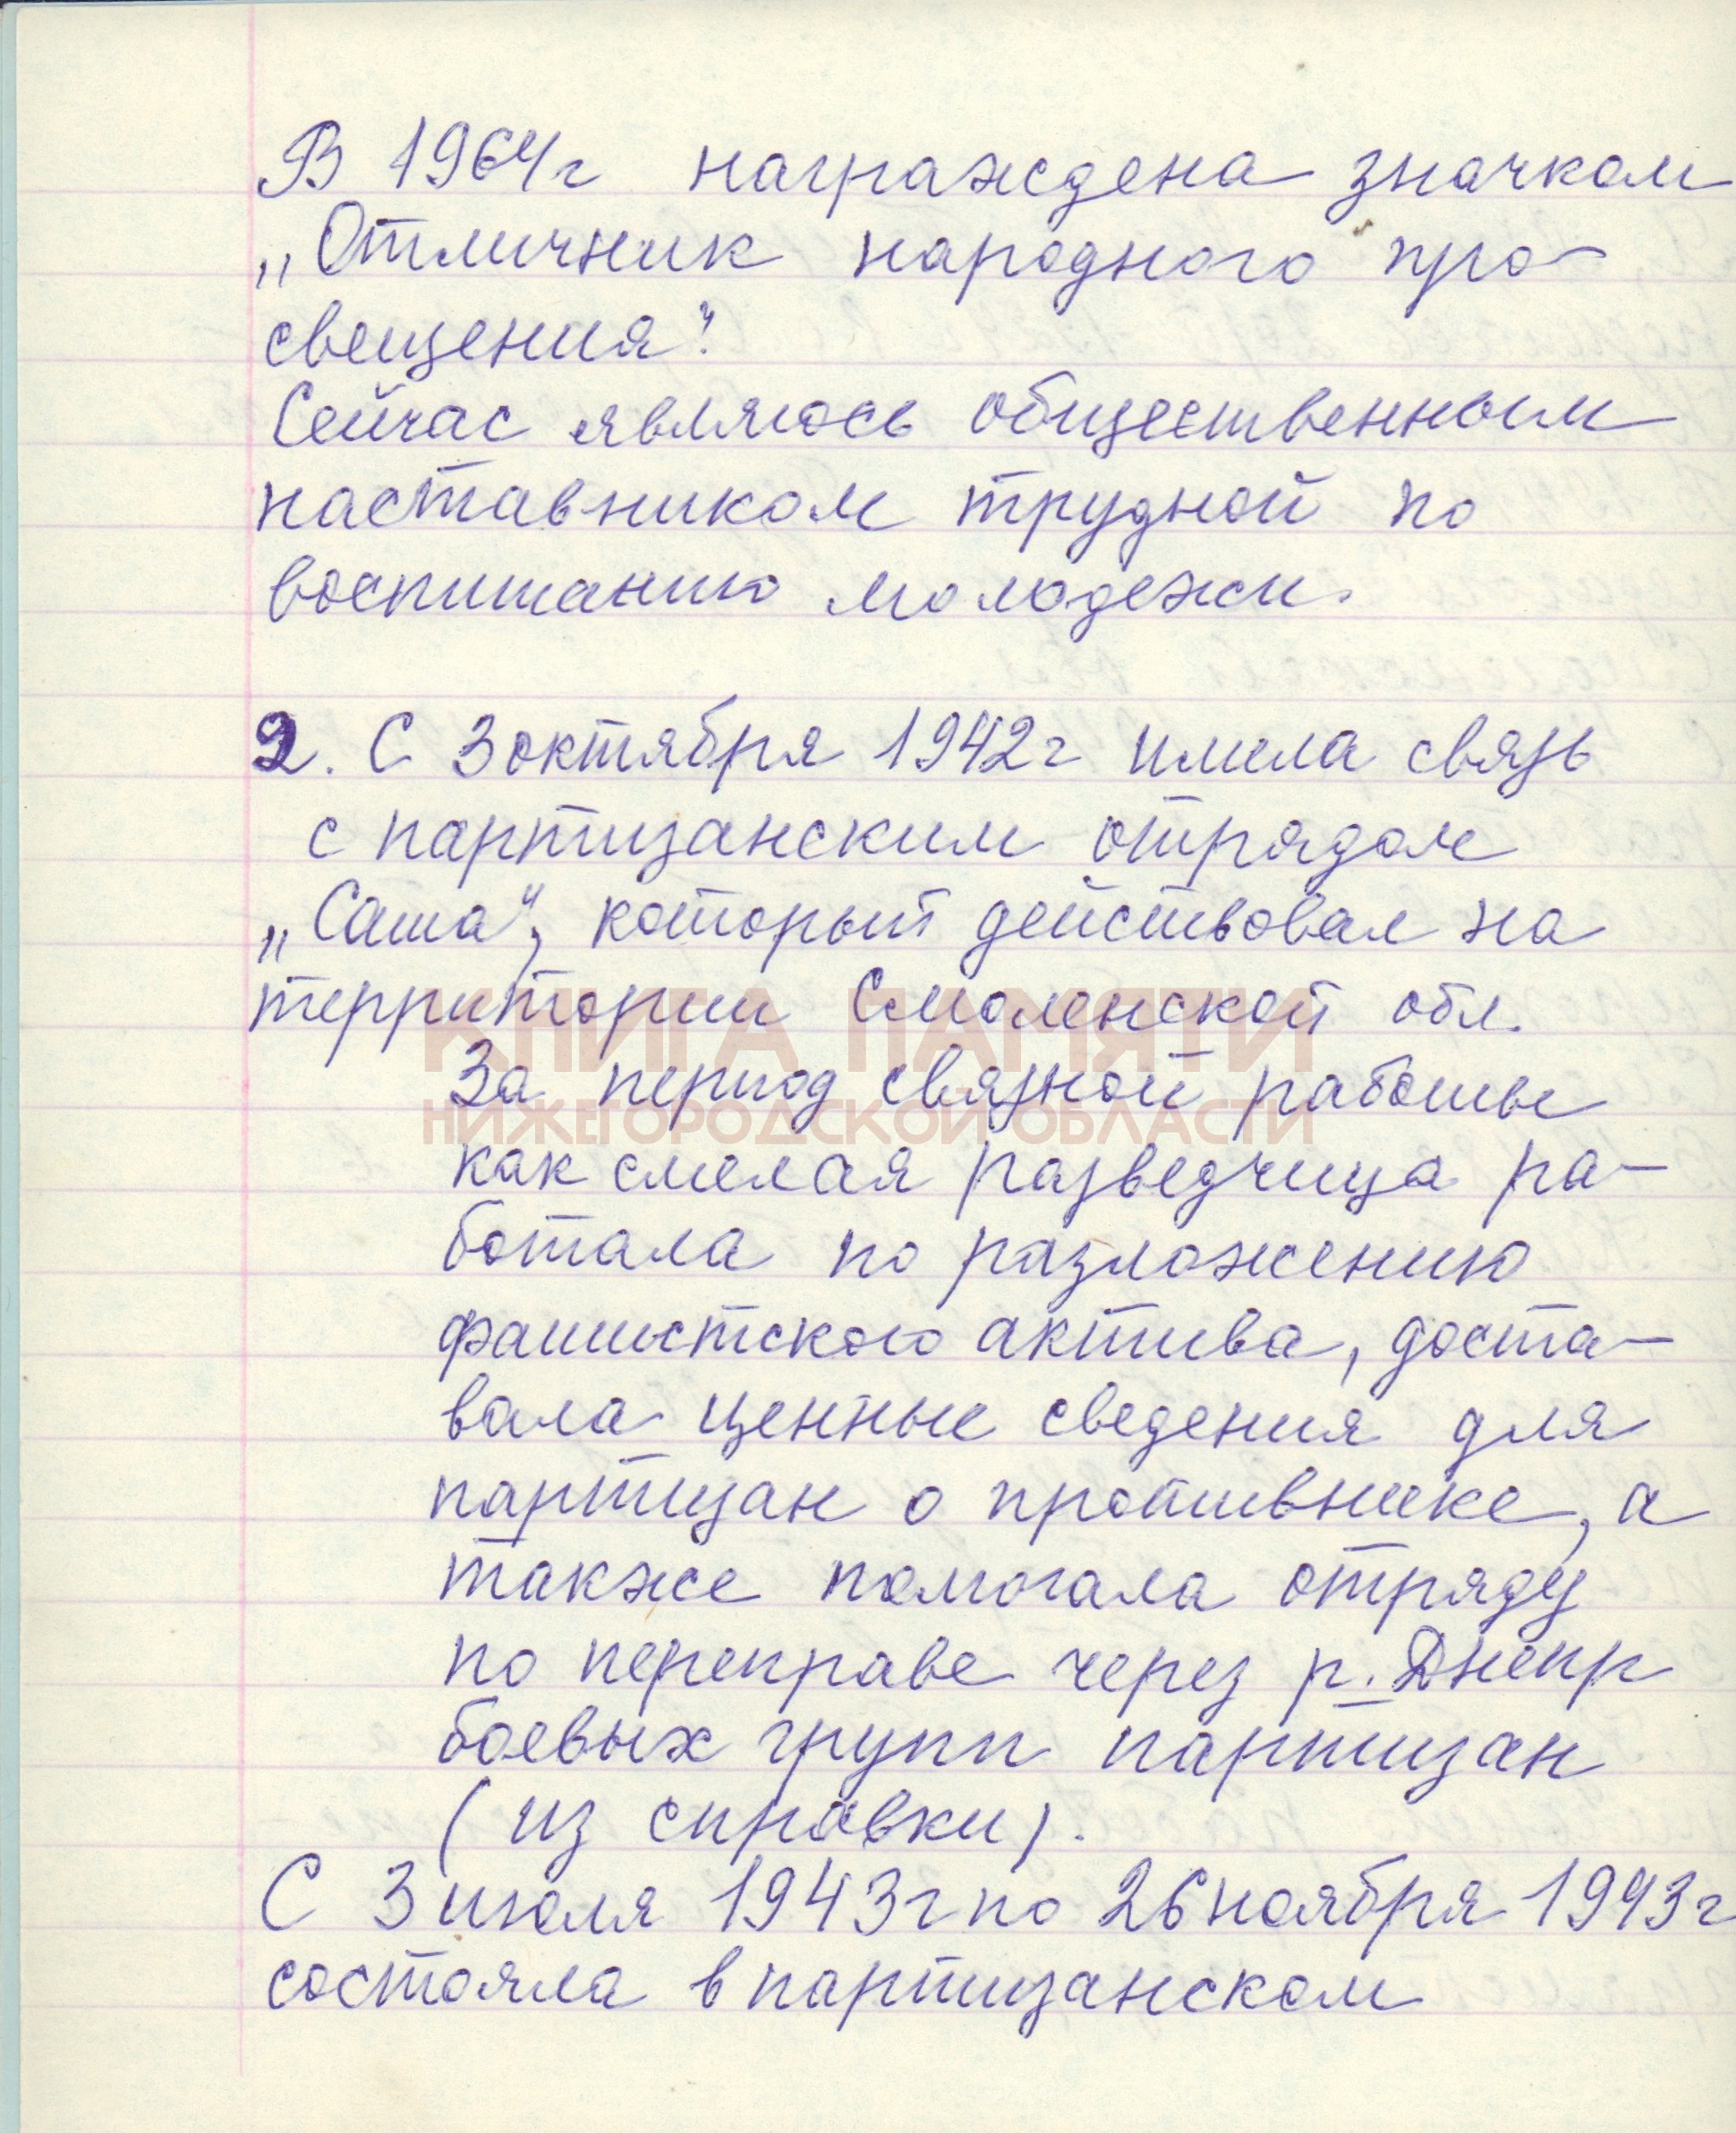 В 1964г награждена значком
„Отличник народного про-
свещения".
Сейчас являюсь общественным
наставником трудной по
воспитанию молодежи.
2. С 3 октября 1942г имела связь
с партизанским отрядом
„Саша", который действовал на
территории Смоленской обл.
КНИГА ПАМЯТИ
За период связной работы
НИЖЕГОРОДСКОЙ ОБЛАСТИ
как смелая разведчица ра-
ботала по разложению
фашистского актива, доста-
вала ценные сведения для
партизан о противнике, а
также помогала отряду
по переправе через р. Днепр
боевых групп партизан
(из справки).
С 3 июля 1943г по 26 ноября 1943г
состояла в партизанском